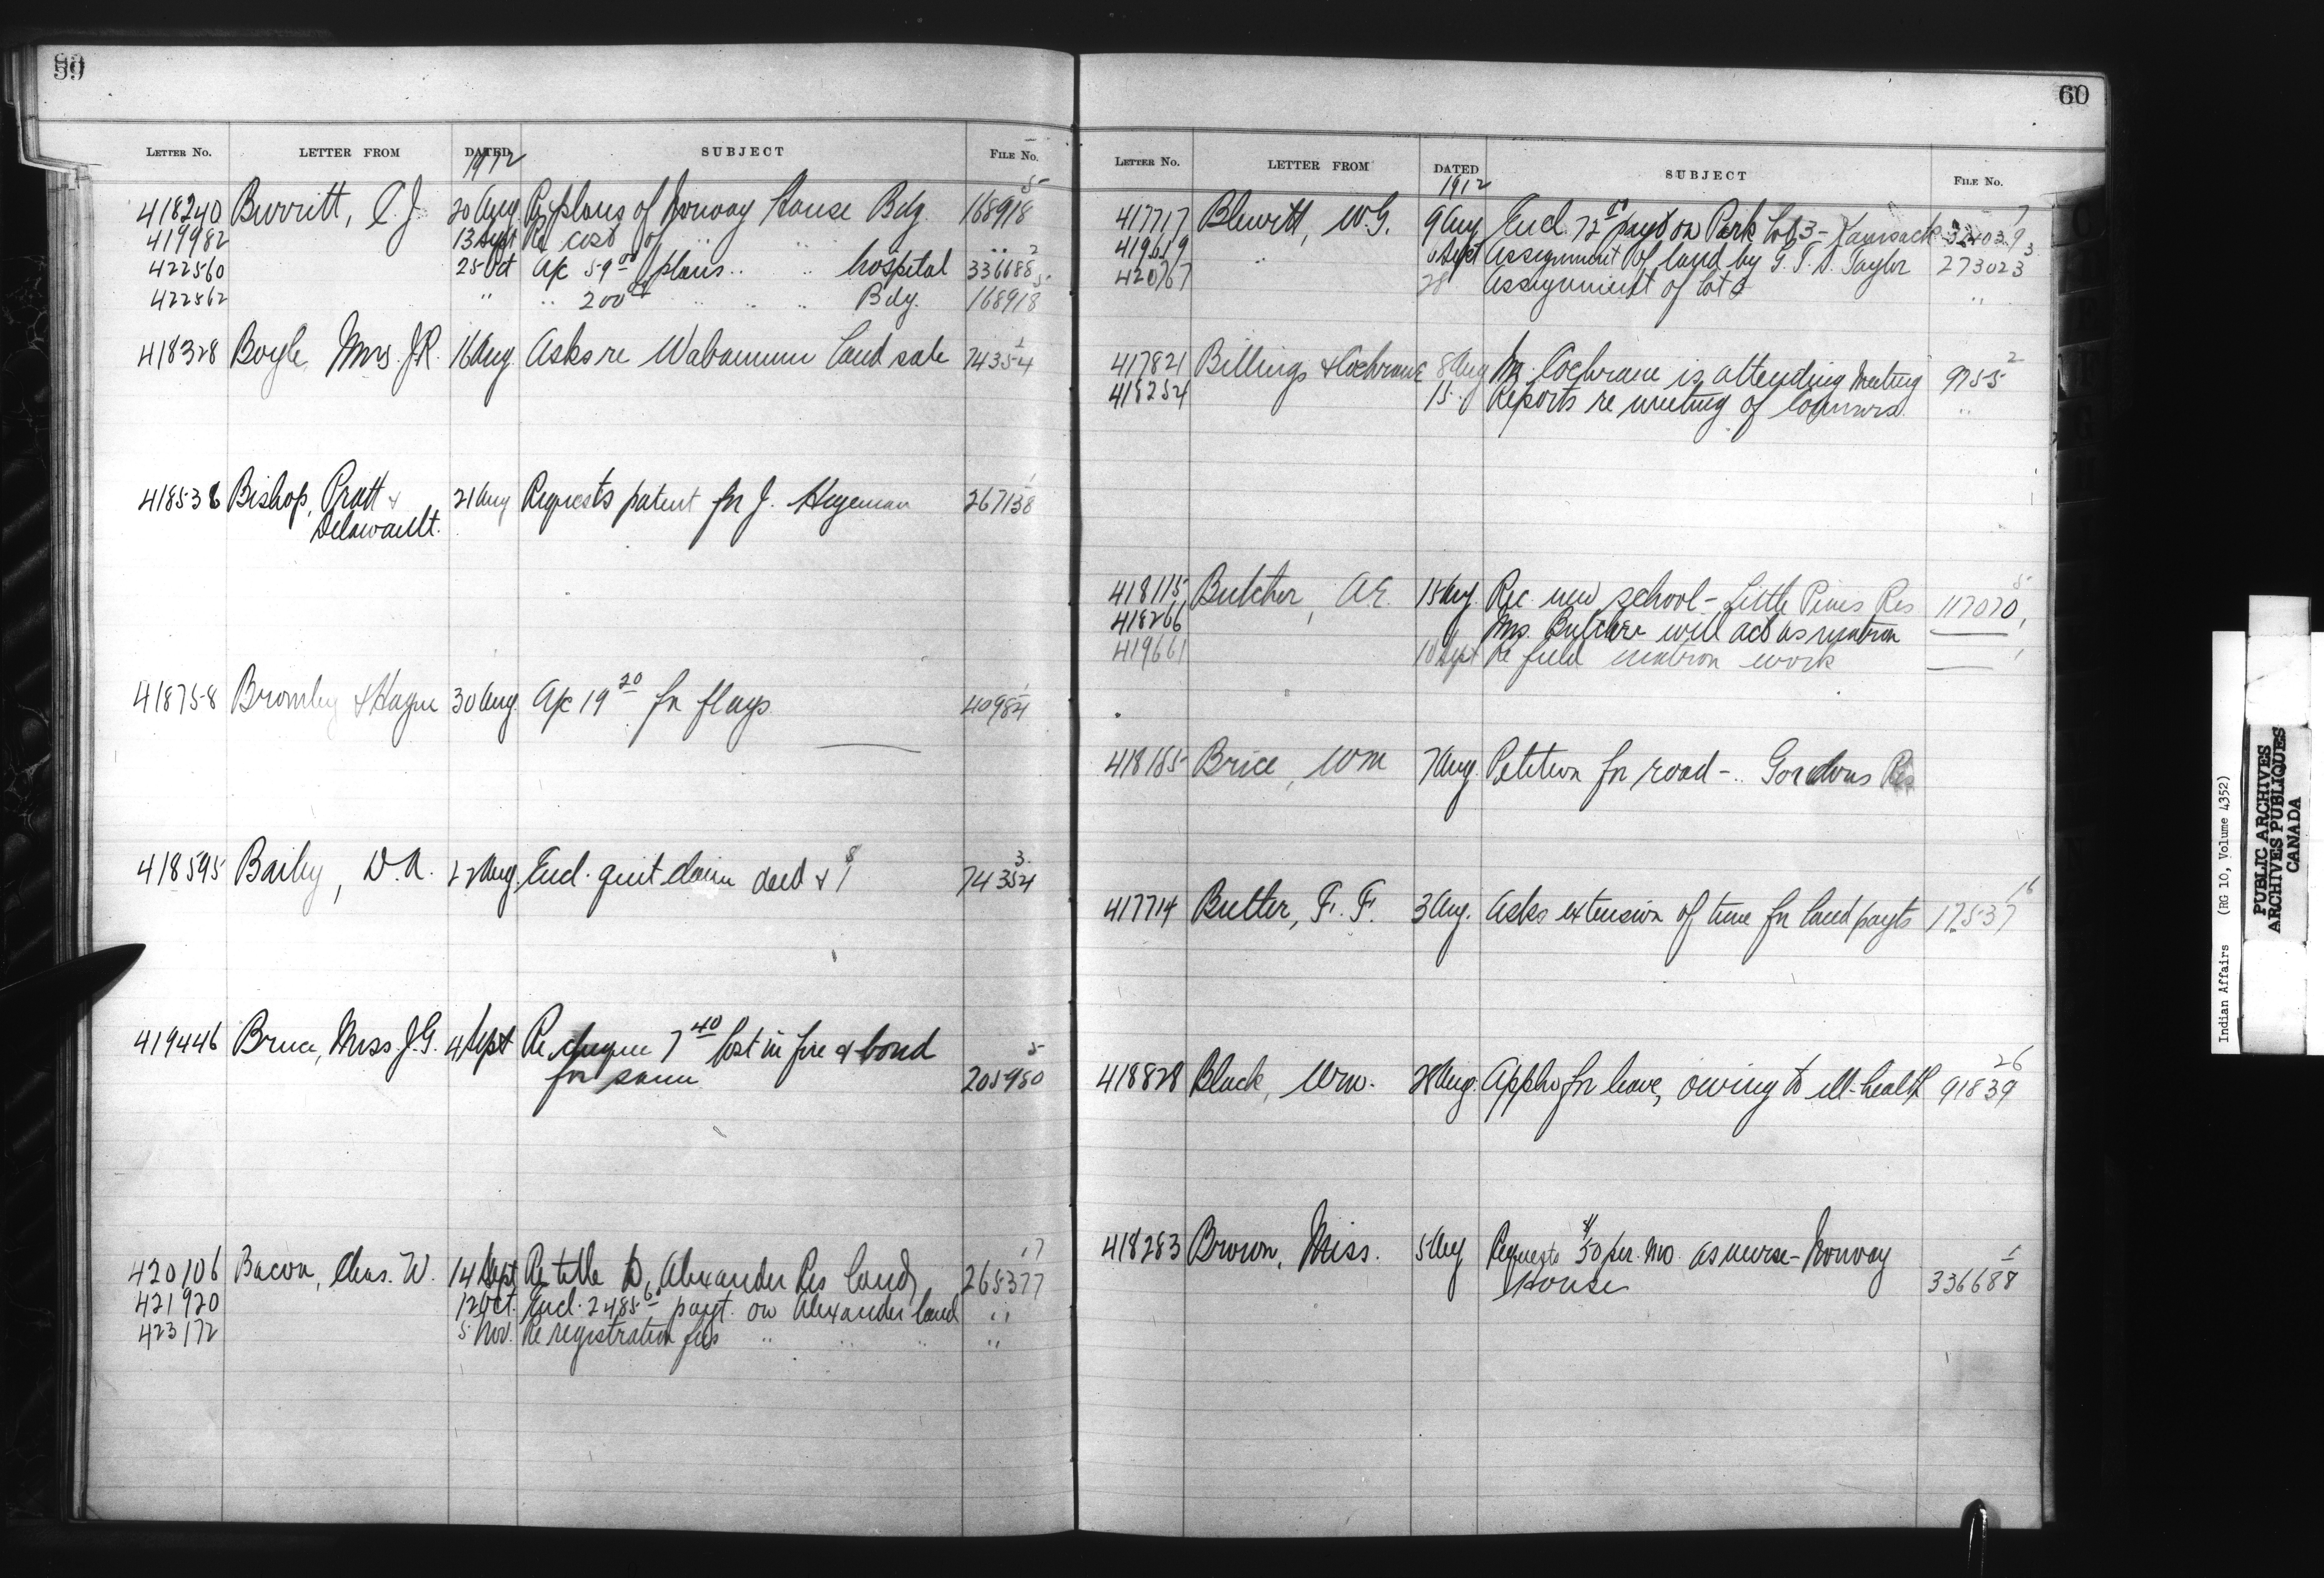 59
LETTER NO. LETTER FROM DATED SUBJECT FILE No.
1912
418240 Burritt, C. J. 20 Aug. Re plans of Norway House Bdg. 168918 5
419982 13 Sept Re cost of " " "
422560 25 Oct A/c 59 00 plans " " hospital 336688 2
422562 " " 200 00 " " " Bdg. 168918 5
418328 Boyle Mrs. J.R. 16 Aug. Asks re Wabamun land sale 74354
418538 Bishop, Pratt & 21 Aug Requests patent for J. Hegeman 267138 1
Delavault.
418758 Bromley & Hague 30 Aug. A/c 19 20 for flags 40984 1
418595 Baily, D.A. 22 Aug. Encl. quit claim deed & 74354 3
419446 Bruce, Miss. J.G. 4 Sept Re cheque 7 40 lost in fire & bond
for same 205950 5
420106 Bacon, Chas. W. 14 Sept Re title to Alexander Res land 265377 17
421920 12 Oct. Encl. 2485 payt. on Alexander land "
423172 5 Nov. Re registration fees " " " "
60
LETTER NO. LETTER FROM DATED SUBJECT FILE NO.
1912
417717 Blewitt, W.G. 9 Aug Encl. 72 payt on Park Lot 3 - Kamsack 324039 7
419619 " Sept Assignment of land by G. T. D. Taylor 273023 3
420767 28 Assignment of lot "
417821 Billings & Cochrane 8 Aug Mr. Cochrane is attending meeting 9755 2
418254 15 Reports re meeting of Commrs. "
418115 Butcher, A.E. 15 Aug. Rec. new school - Little Pines Res 117070 5
418266 Mrs. Butcher will act as matron
419661 10 Sept Re field matron work
418185 Brice, Wm 7 Aug. Petition for road - Gordons Res
417714 Butler, F. F. 3 Aug. Asks extension of time for land payts 17537 16
418828 Black, Wm. 28 Aug. Appln for leave, owing to ill-health 91839 26
418283 Brown, Miss. 5 Aug Requests $50 per. mo. as nurse - Norway
House 336688 1
Indian Affairs (RG 10, Volume 4352)
PUBLIC ARCHIVES
ARCHIVES PUBLIQUES
CANADA